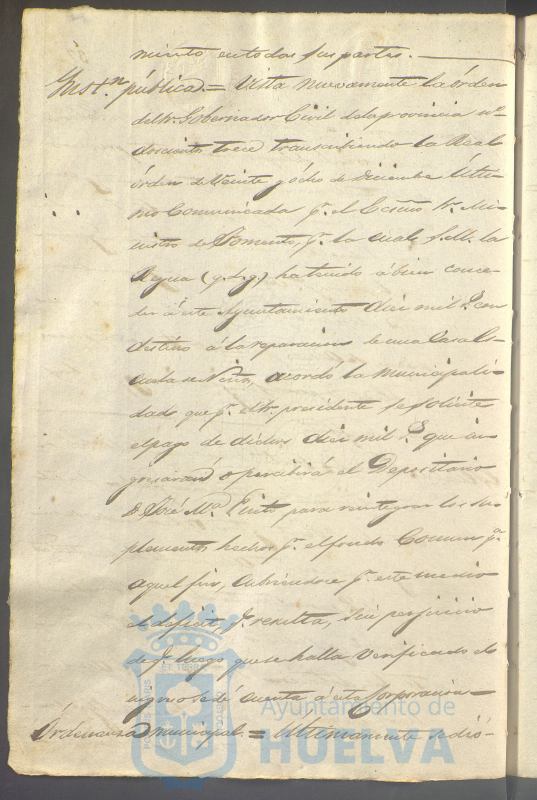 miento en todas sus partes.
Inst.n pública = Vista nuevamente la órden
del Sr. Gobernador Civil de la provincia n.º
doscientos trece transcribiendo la Real
órden de veinte y ócho de Diciembre últi-
mo comunicada p.r el Excmo. Sr. Mi-
nistro de Fomento, p.r la cual S.M. la
Reyna (q.D.g.) ha tenido á bien conce-
der á este Ayuntamiento diez mil r.s con
destino á la reparacion de una Casa Es-
cuela de Niños, acordó la municipali-
dad que p.r el Sr. presidente se solicite
el pago de dichos diez mil r.s que in-
gresará ó percibirá el Depositario
D. José M.a Pinto para reintegrar los su-
plementos hechos p.r el fondo Comun p.a
aquel fin, cubriendose p.r este medio
el deficit q.e resulta, sin perjuicio
de q.e luego que se halla verificado el
ingreso se dé cuenta á esta Corporacion=
Órdenanza municipal. = Ultimamente se dió
Ayuntamiento de
HUELVA